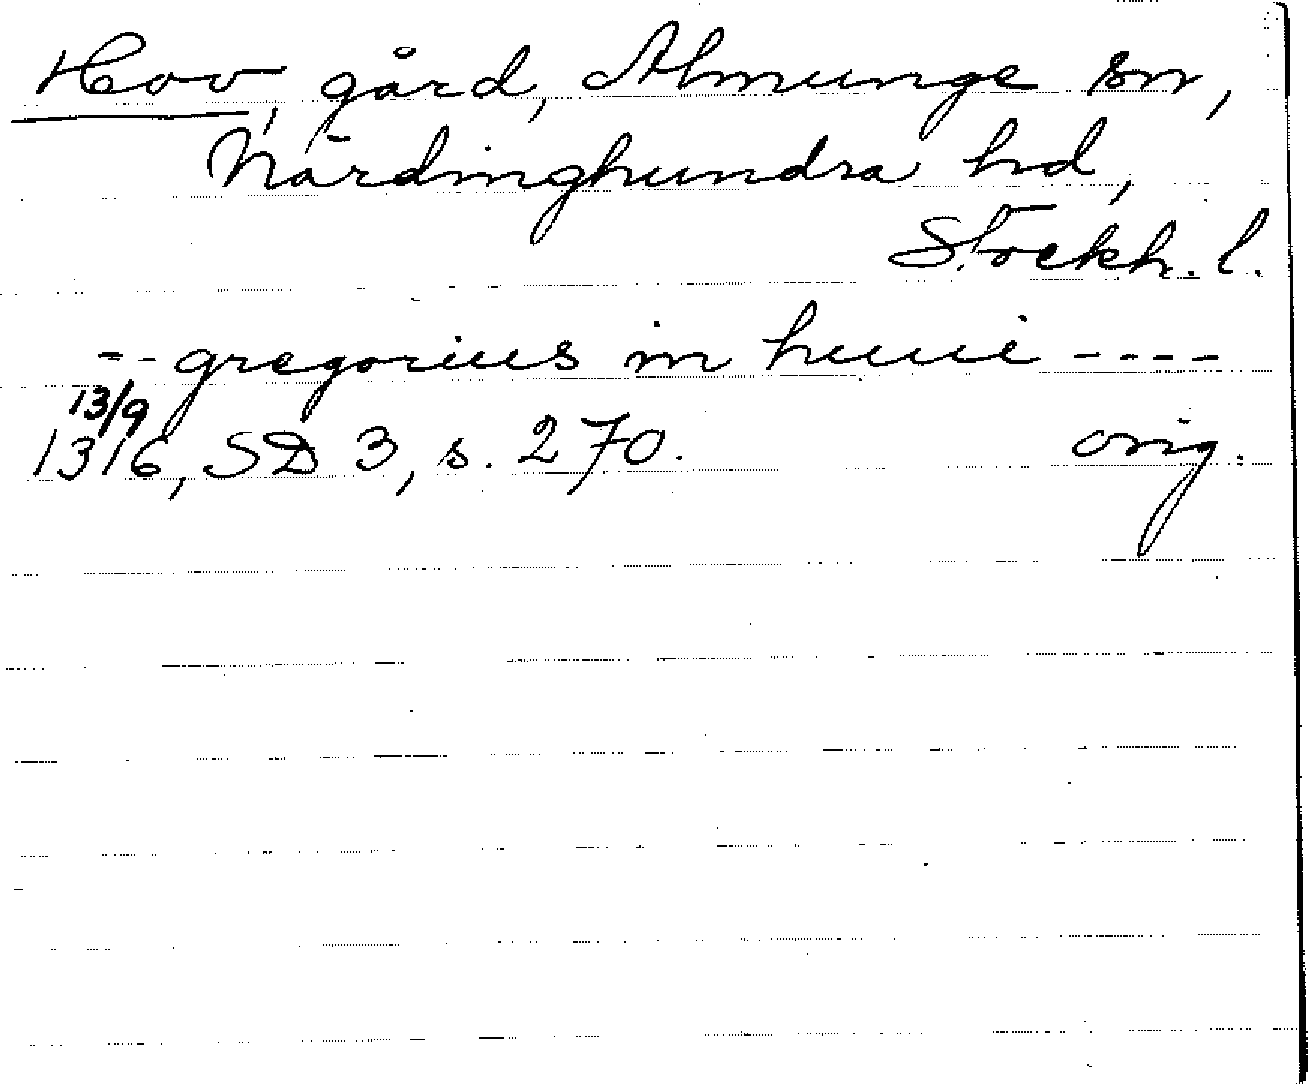 Hov, gård, Almunge sn,
Närdinghundra hd,
Stockh. l.
-- gregorius in huui ----
13/9
1316, SD 3, s. 270. orig.